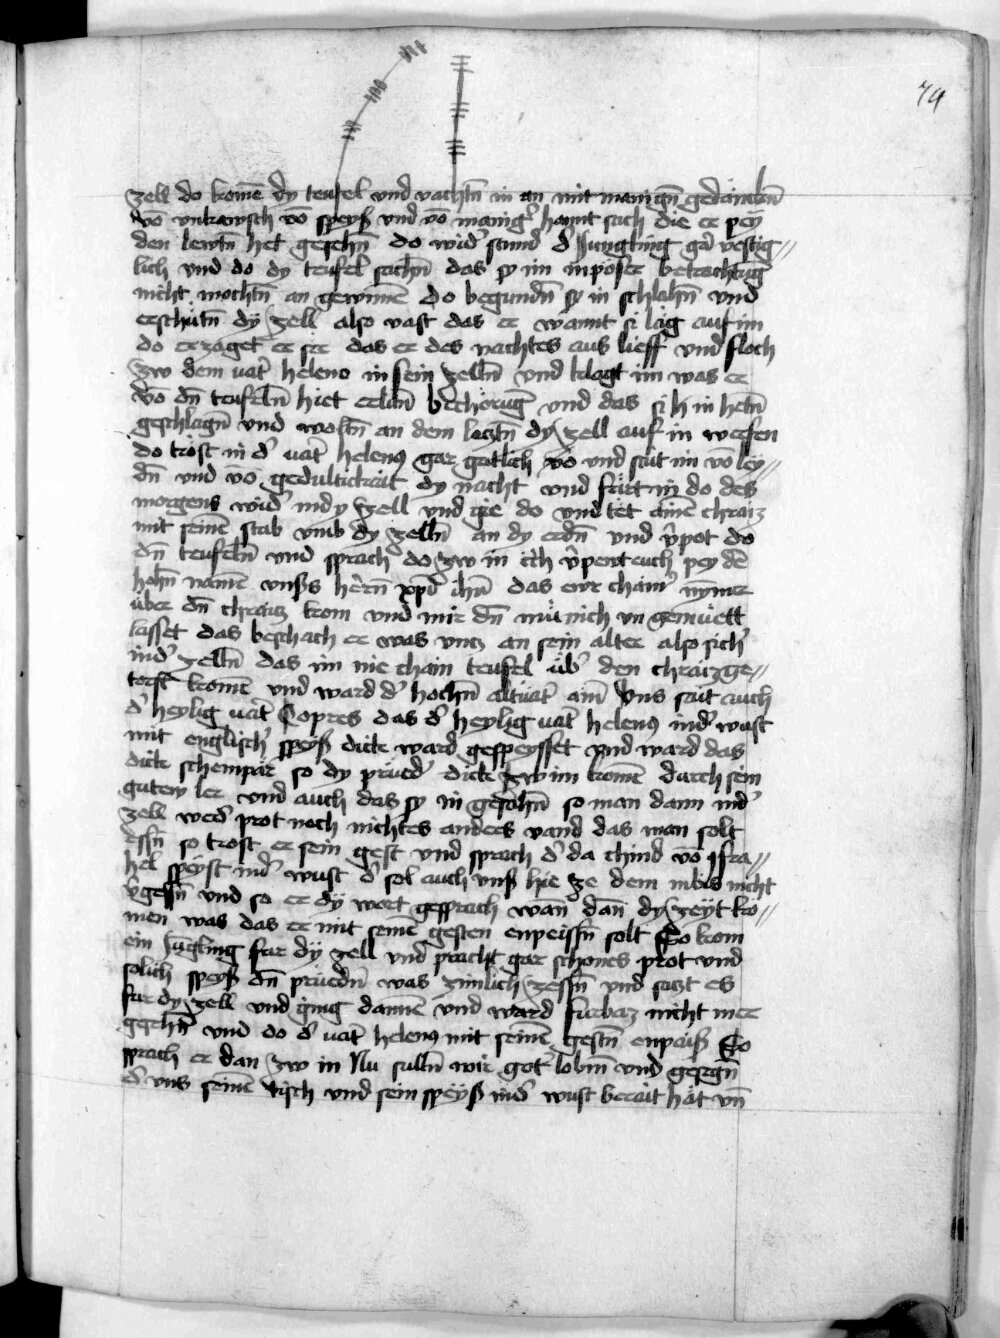 79
zell do komē dy teufel vnd vachtn̄ in an mit manign̄ gedānckn̄
vō vnkawsch vō speyß vnd vō manig' hannt sach die er pey
den lewtn̄ het gesehn̄ do wid' stund d' Jungling gar vestig〃
lich vnd do dy teufel sachn̄ das sy im in pöser betrachtūg
nicht mochtn̄ an gewinnē do begundn̄ sy in schlahn̄ vnd
erschutn̄ dÿ zell also vast das er wannt si läg auf im
do erzaget er ser das er des nachtes aus lieff vnd floch
zw dem vat' heleno in sein zelln̄ vnd klagt im was er
vō dn̄ teufeln̄ hiet erlitn̄ bechörūg vnd das sich in hetn̄
geschlagn̄ vnd woltn̄ an dem lecztn̄ dy zell auf in werfen
do tröst in d' vat' helenꝰ gar gotlich vō vnd sait im vō ley〃
dn̄ vnd vō gedultickait dy nacht vnd fürt in do des
morgens wid' in dy zell vnd gie do vnd tet ainē chraiz
mit seinē stab vmb dy zelln̄ an dy erdn̄ vnd v̄pot do
dn̄ teufeln̄ vnd sprach do zw in ich v̄pewt euch pey dē
hohn̄ namē vnsers herrn̄ xp̄i ih̄u das ewr chain' nymer
über dn̄ chraicz kom vnd mir dn̄ münich vn gemüett
lasset das beschach er was vncz an sein alter also sich'
in d' zelln̄ das im nie chain teufel üb' den chraicz ge〃
torst komē vnd ward d' hochn̄ altüat' ain' Vns sait auch
d' heylig vat' Copres das d' heylig vat' helenꝰ in d' wust
mit englisch' speyß dick ward gespeysset vnd ward das
dick schempär so dy prüed' dick zw im komē durch sein
gutew ler vnd auch das sy in gesähn̄ so man dann in d'
zell wed' prot noch nichtes anders vand das man solt
essn̄ so trost er sein gest vnd sprach d' da chind vō isra〃
hel speyst in d' wust d' sol auch vnß hie ze dem inbis nicht
v̄gessn̄ vnd so er dÿ wort gesprach wan̄ dan̄ dy zeyt ko〃
men was das er mit seinē gesten enpeissn̄ solt So kom
ein Jūgling fur dÿ zell vnd pracht gar schones prot vnd
solich speyß dn̄ prüedn̄ was zimlich zessn̄ vnd saczt es
fur dy zell vnd ging dannē vnd ward furbaz nicht mer
gesehn̄ vnd do d' vat' helenꝰ mit seinē gestn̄ enpaiß So
sprach er dan zw in Nu sulln̄ wir got lobm̄ vnd gesegn̄
d' vns seinē tisch vnd sein speyß in d' wust berait hat vn̄